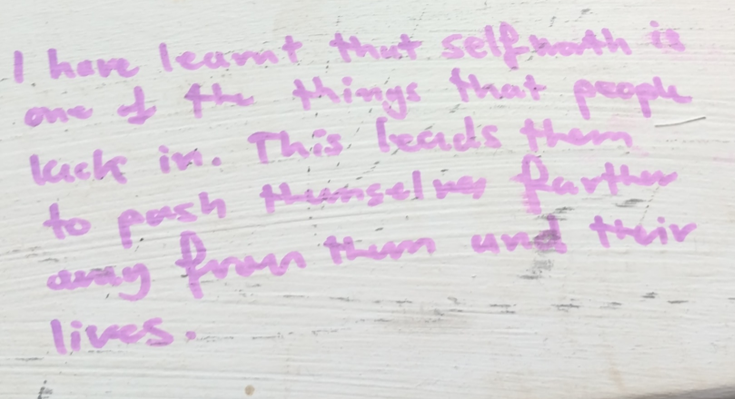 I have learnt that selfworth is
one of the things that people
lack in. This leads them
to push themselves farther
away from them and their
lives.